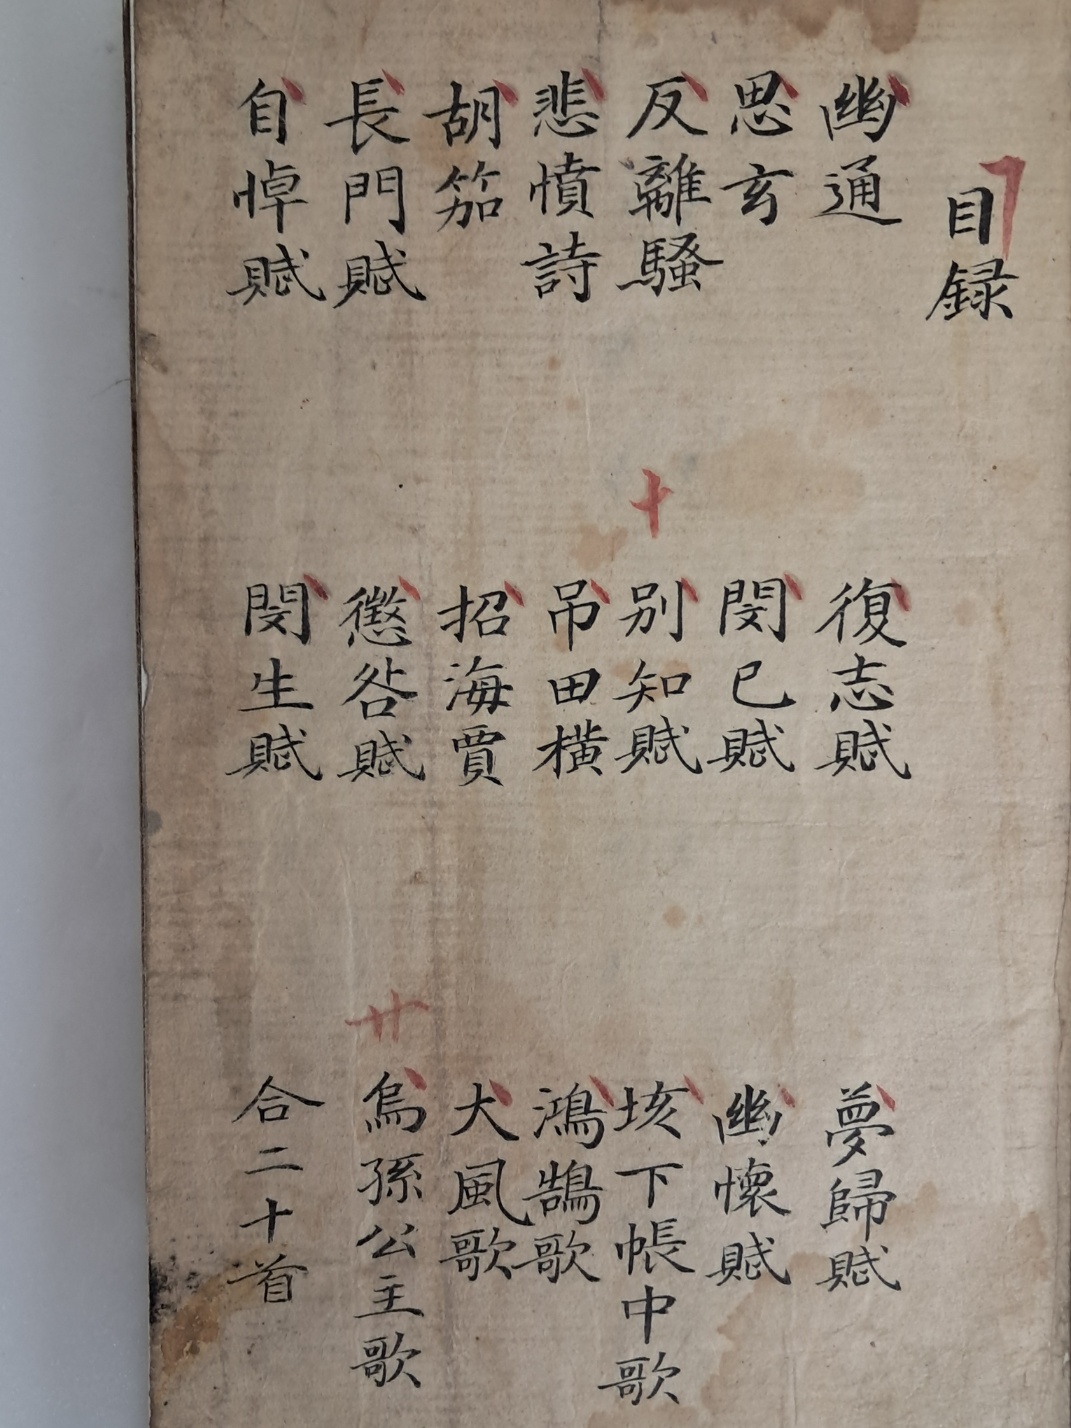 目録
幽通
思玄
反離騷
悲憤詩
胡笳
長門賦
自悼賦
十
復志賦
閔已賦
别知賦
吊田橫
招海賈
懲咎賦
閔生賦
廿
夢歸賦
幽懷賦
垓下帳中歌
鴻鵠歌
大風歌
烏孫公主歌
合二十首